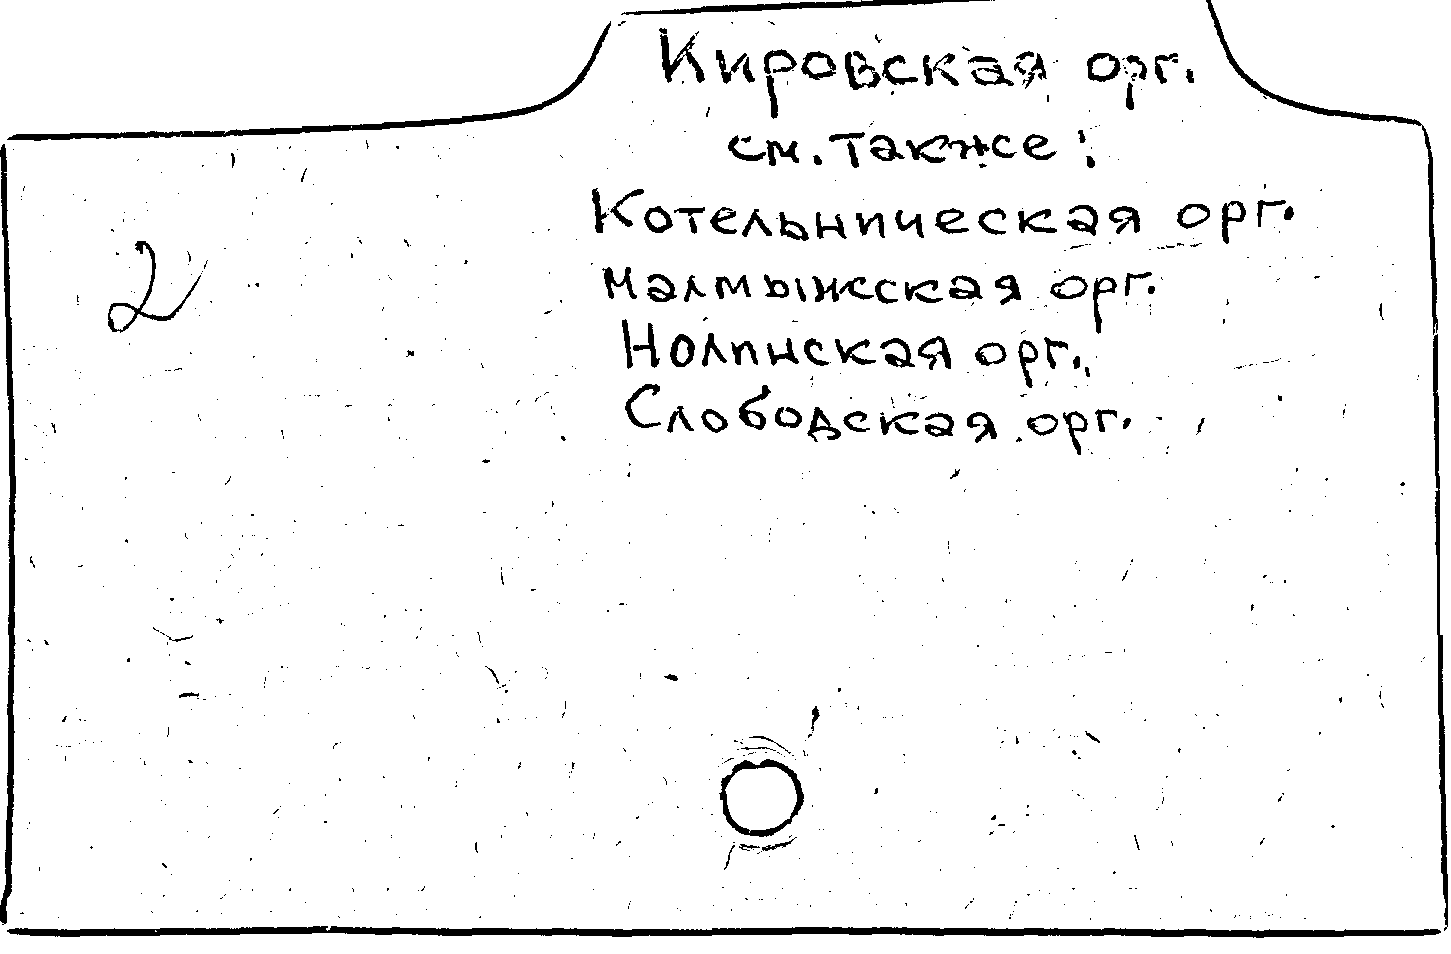 Кировская орг.
см. также:
Котельническая орг.
2
Малмыжская орг.
Нолинская орг.
Слободская орг.